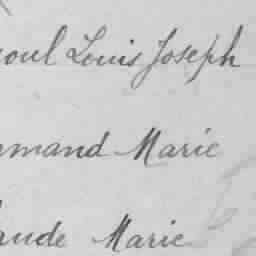 oul Louis Joseph
rmand Marie
aude Marie